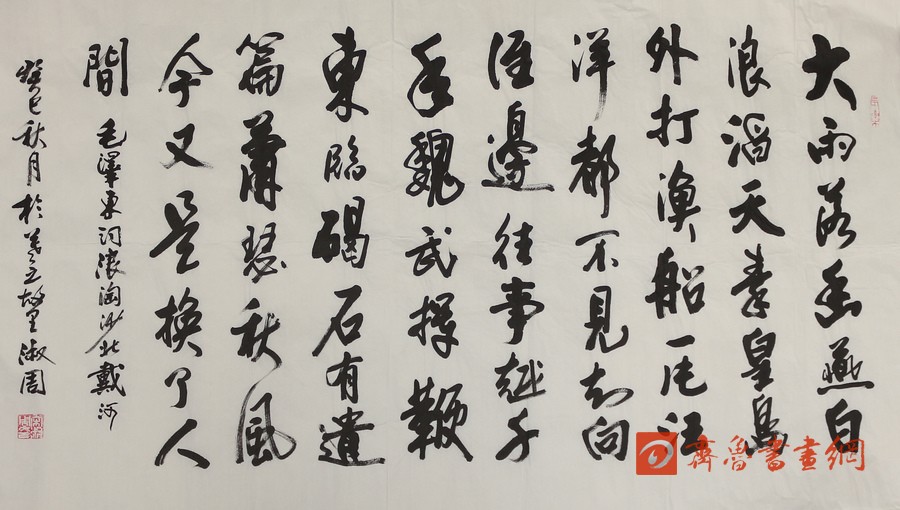 大雨落幽燕白
浪滔天秦皇島
外打漁船一片汪
洋都不見知向
誰邊往事越千
年魏武揮鞭
東臨碣石有遺
篇蕭瑟秋風
今又是換了人
間 毛澤東詞浪淘沙北戴河
癸巳秋月於羲之故里淑周
齊魯書畫網